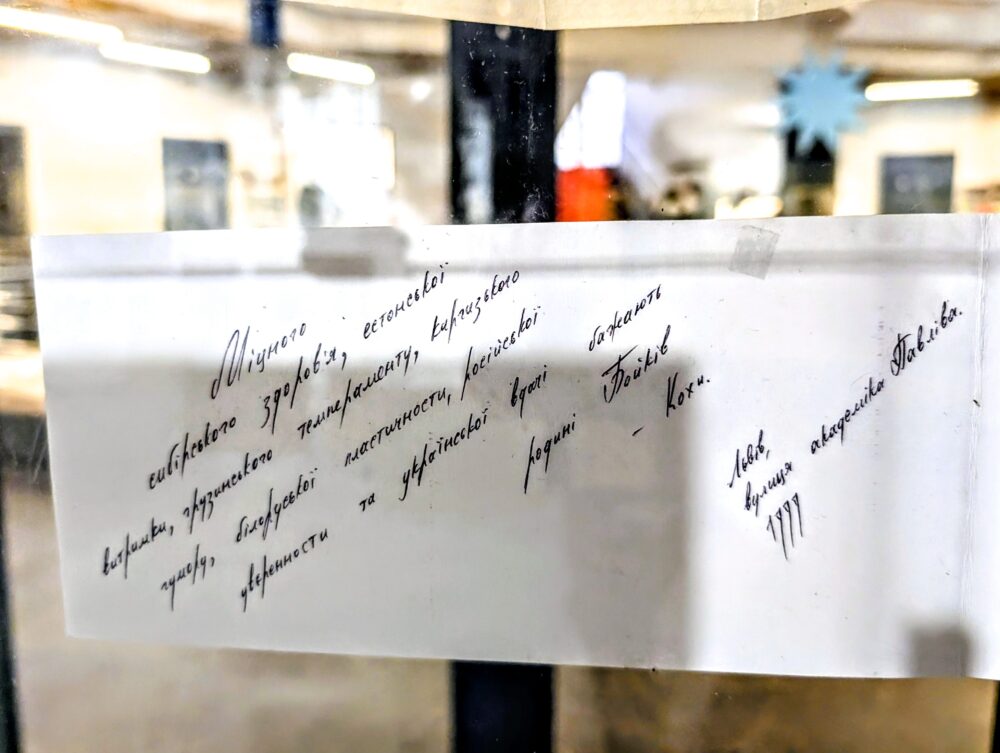 Міцного
сибірського здоров'я, естонської
витримки, грузинського темпераменту, киргизького
гумору, білоруської пластичности, російської
увєренности та української вдачі бажають
родині Бойків
– Кохи.
Львів,
вулиця академіка Павліва.
1999